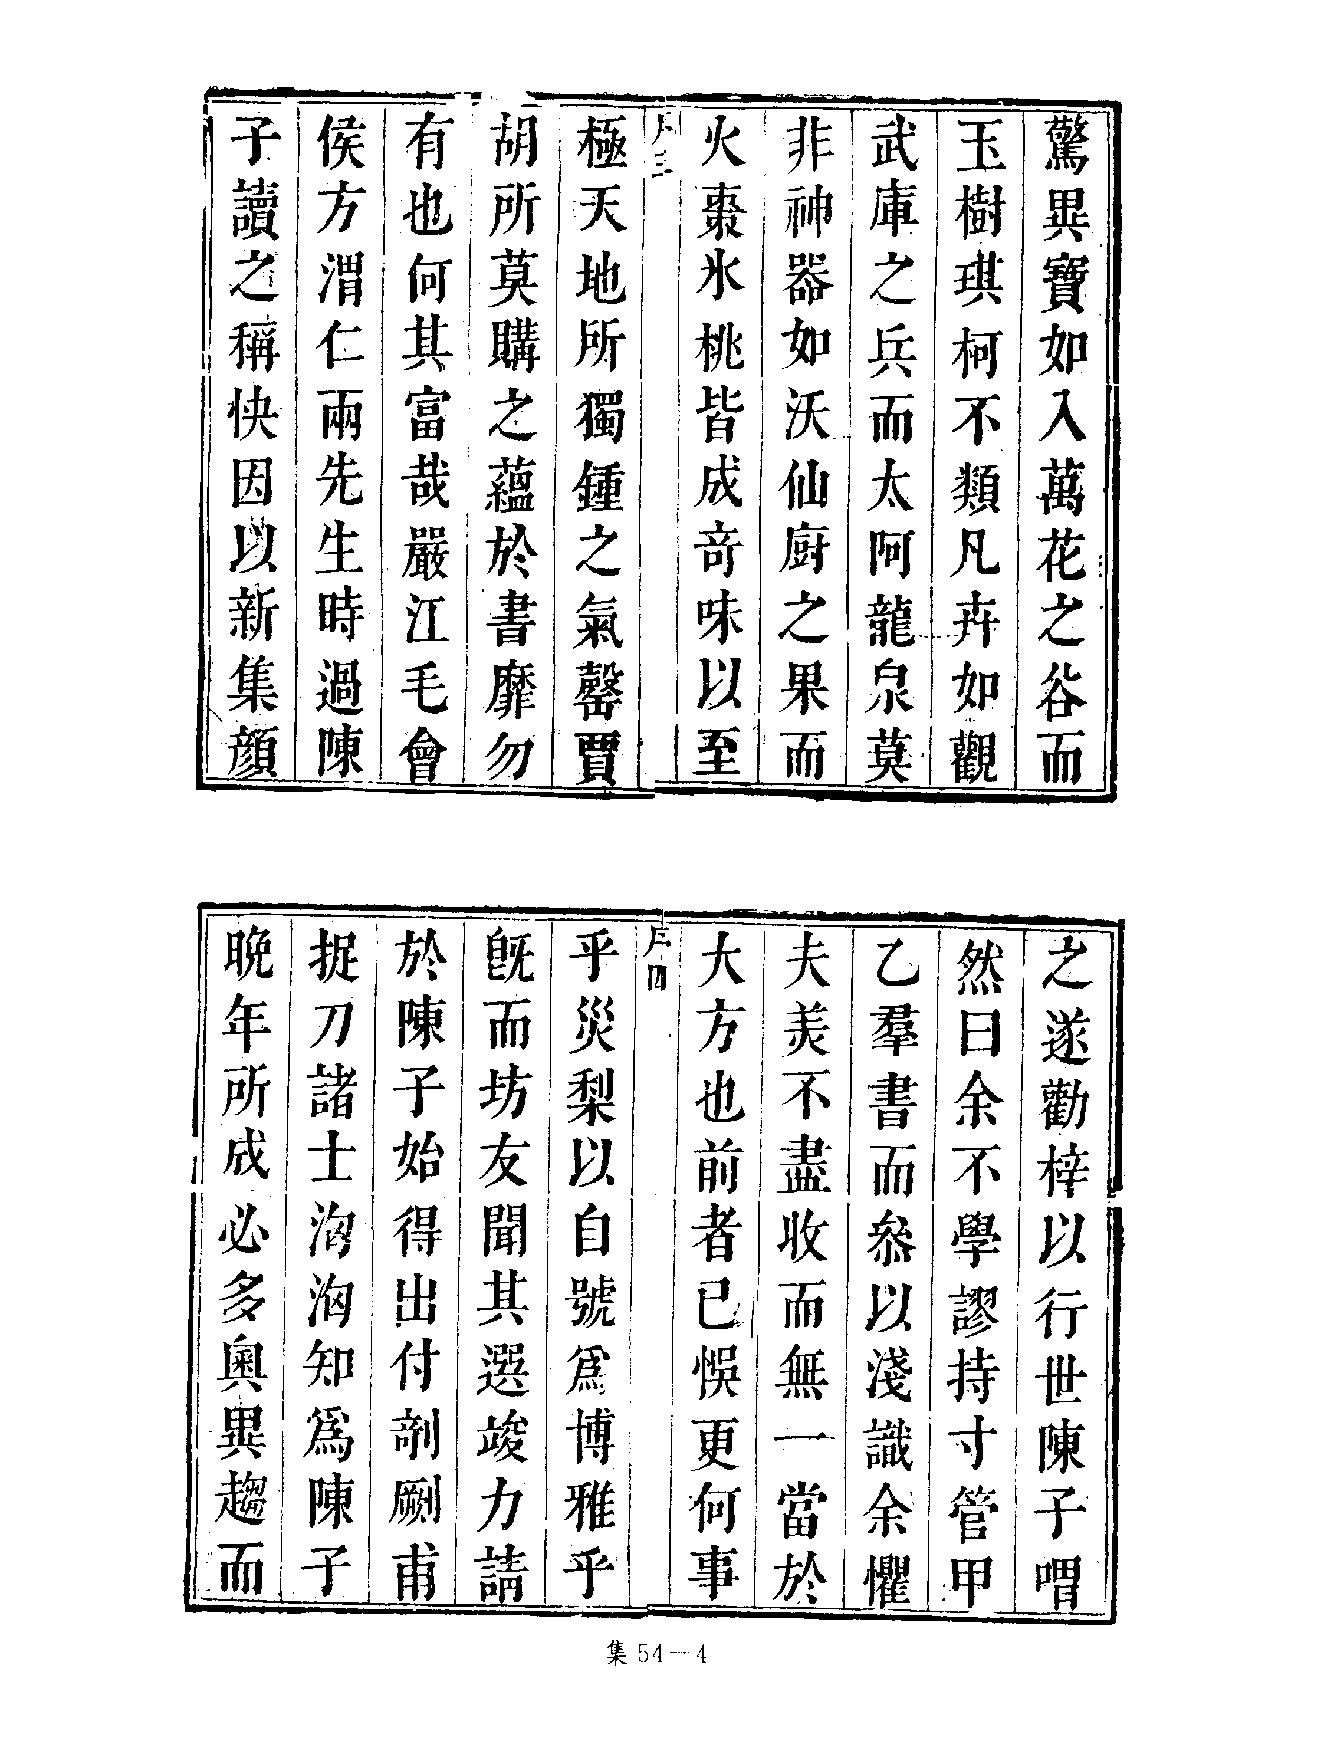 驚異寶如入萬花之谷而
玉樹琪柯不類凡卉如觀
武庫之兵而太阿龍泉莫
非神器如沃仙廚之果而
火棗氷桃皆成奇味以至
序三
極天地所獨鍾之氣罄賈
胡所莫購之蘊於書靡勿
有也何其富哉嚴江毛會
侯方渭仁兩先生時過陳
子讀之稱快因以新集顔
之遂勸梓以行世陳子喟
然曰余不學謬持寸管甲
乙羣書而叅以淺識余懼
夫美不盡收而無一當於
大方也前者已悞更何事
序四
乎災梨以自號爲博雅乎
旣而坊友聞其選竣力請
於陳子始得出付剞劂甫
捉刀諸士洶洶知爲陳子
晩年所成必多奧異趨而
集54－4